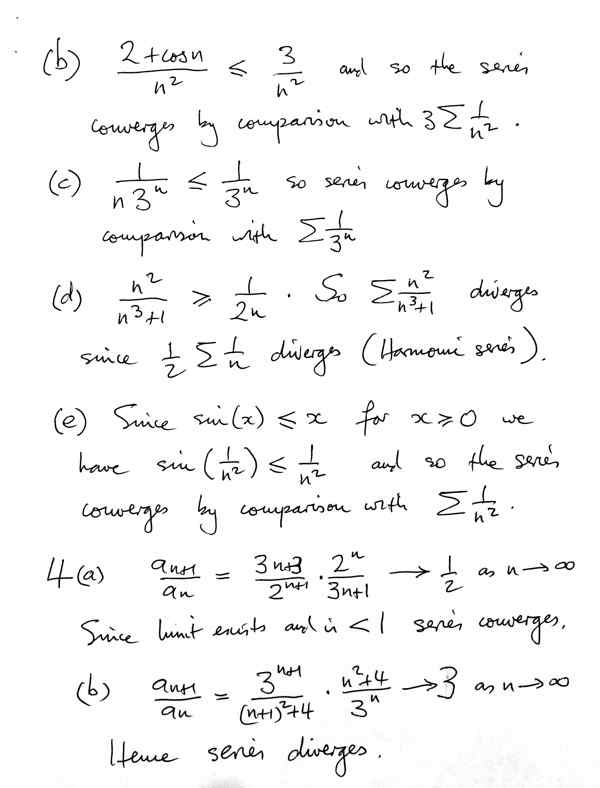 (b) (2+cos n)/n² ≤ 3/n² and so the series
converges by comparison with 3 Σ 1/n² .
(c) 1/(n 3ⁿ) ≤ 1/3ⁿ so series converges by
comparison with Σ 1/3ⁿ
(d) n²/(n³+1) ⩾ 1/(2n) . So Σ n²/(n³+1) diverges
since 1/2 Σ 1/n diverges (Harmonic series).
(e) Since sin(x) ≤ x for x ⩾ 0 we
have sin(1/n²) ≤ 1/n² and so the series
converges by comparison with Σ 1/n² .
4(a) aₙ₊₁/aₙ = (3n+3)/2ⁿ⁺¹ · 2ⁿ/(3n+1) → 1/2 as n→∞
Since limit exists and is < 1 series converges.
(b) aₙ₊₁/aₙ = 3ⁿ⁺¹/((n+1)²+4) · (n²+4)/3ⁿ → 3 as n→∞
Hence series diverges.